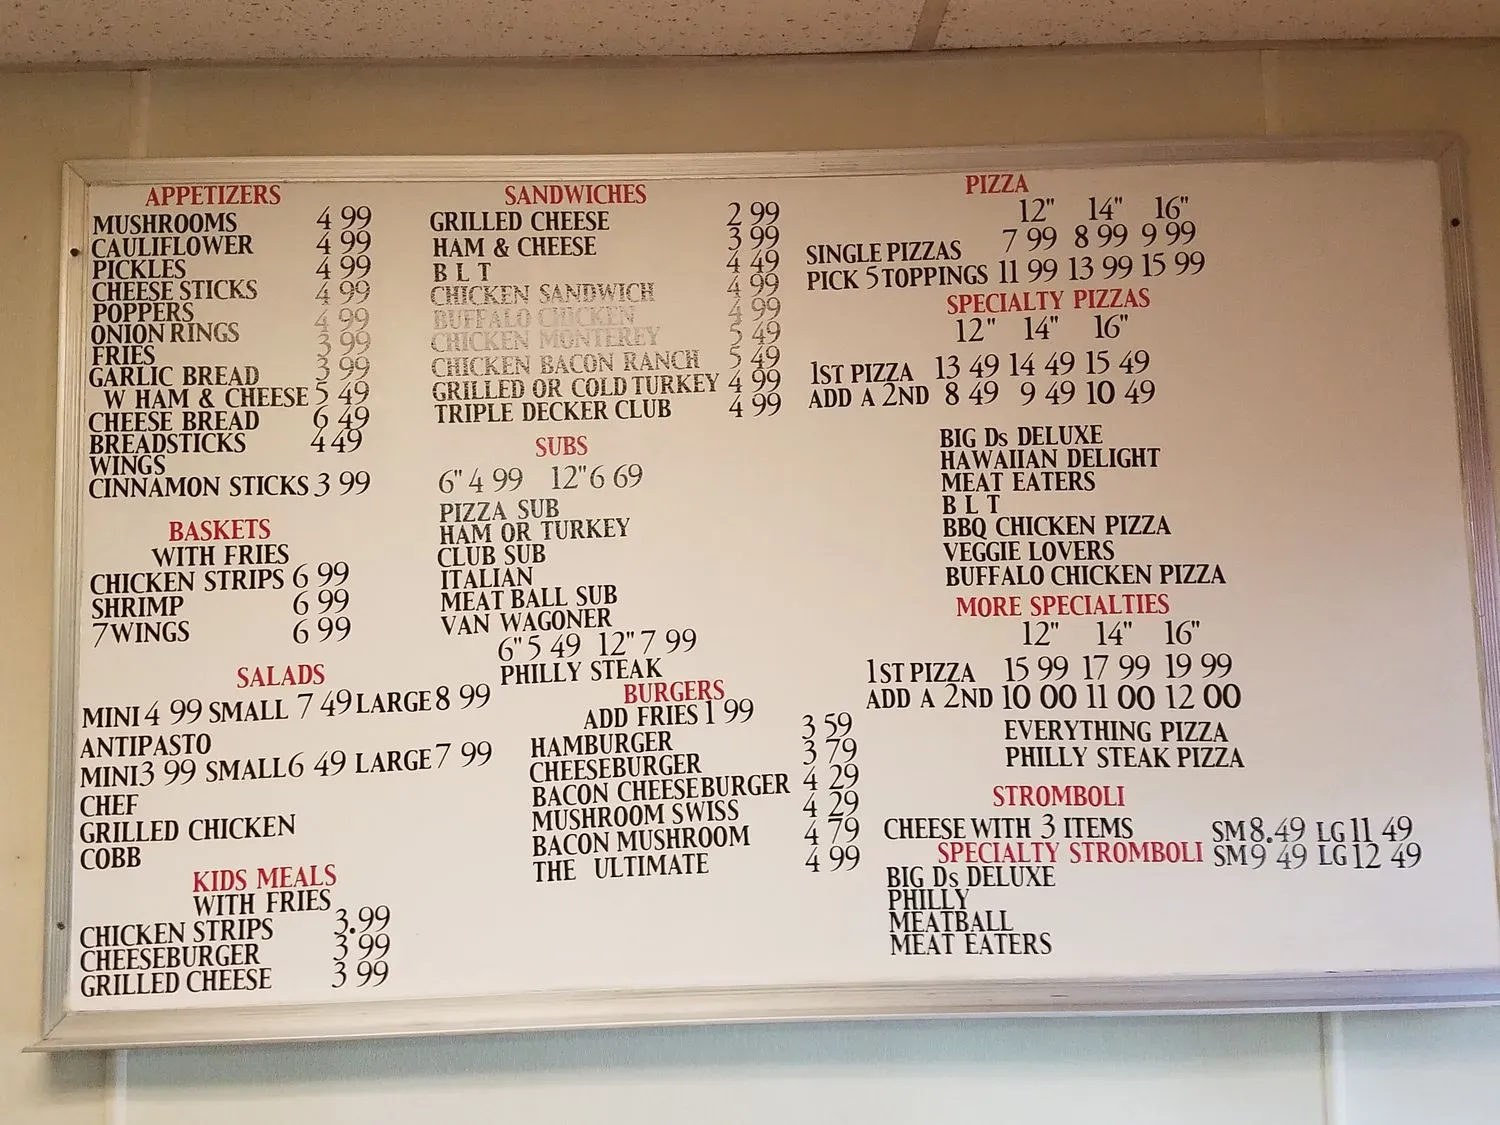 APPETIZERS
MUSHROOMS 4 99
CAULIFLOWER 4 99
PICKLES 4 99
CHEESE STICKS 4 99
POPPERS 4 99
ONION RINGS 3 99
FRIES 3 99
GARLIC BREAD
W HAM & CHEESE 5 49
CHEESE BREAD 6 49
BREADSTICKS 4 49
WINGS
CINNAMON STICKS 3 99
BASKETS
WITH FRIES
CHICKEN STRIPS 6 99
SHRIMP 6 99
7 WINGS 6 99
SALADS
MINI 4 99 SMALL 7 49 LARGE 8 99
ANTIPASTO
MINI 3 99 SMALL 6 49 LARGE 7 99
CHEF
GRILLED CHICKEN
COBB
KIDS MEALS
WITH FRIES
CHICKEN STRIPS 3.99
CHEESEBURGER 3 99
GRILLED CHEESE 3 99
SANDWICHES
GRILLED CHEESE 2 99
HAM & CHEESE 3 99
B L T 4 49
CHICKEN SANDWICH 4 99
BUFFALO CHICKEN 4 99
CHICKEN MONTEREY 5 49
CHICKEN BACON RANCH 5 49
GRILLED OR COLD TURKEY 4 99
TRIPLE DECKER CLUB 4 99
SUBS
6" 4 99 12" 6 69
PIZZA SUB
HAM OR TURKEY
CLUB SUB
ITALIAN
MEAT BALL SUB
VAN WAGONER
6" 5 49 12" 7 99
PHILLY STEAK
BURGERS
ADD FRIES 1 99
HAMBURGER 3 59
CHEESEBURGER 3 79
BACON CHEESEBURGER 4 29
MUSHROOM SWISS 4 29
BACON MUSHROOM 4 79
THE ULTIMATE 4 99
PIZZA
12" 14" 16"
SINGLE PIZZAS 7 99 8 99 9 99
PICK 5 TOPPINGS 11 99 13 99 15 99
SPECIALTY PIZZAS
12" 14" 16"
1ST PIZZA 13 49 14 49 15 49
ADD A 2ND 8 49 9 49 10 49
BIG Ds DELUXE
HAWAIIAN DELIGHT
MEAT EATERS
B L T
BBQ CHICKEN PIZZA
VEGGIE LOVERS
BUFFALO CHICKEN PIZZA
MORE SPECIALTIES
12" 14" 16"
1ST PIZZA 15 99 17 99 19 99
ADD A 2ND 10 00 11 00 12 00
EVERYTHING PIZZA
PHILLY STEAK PIZZA
STROMBOLI
CHEESE WITH 3 ITEMS SM 8.49 LG 11 49
SPECIALTY STROMBOLI SM 9 49 LG 12 49
BIG Ds DELUXE
PHILLY
MEATBALL
MEAT EATERS